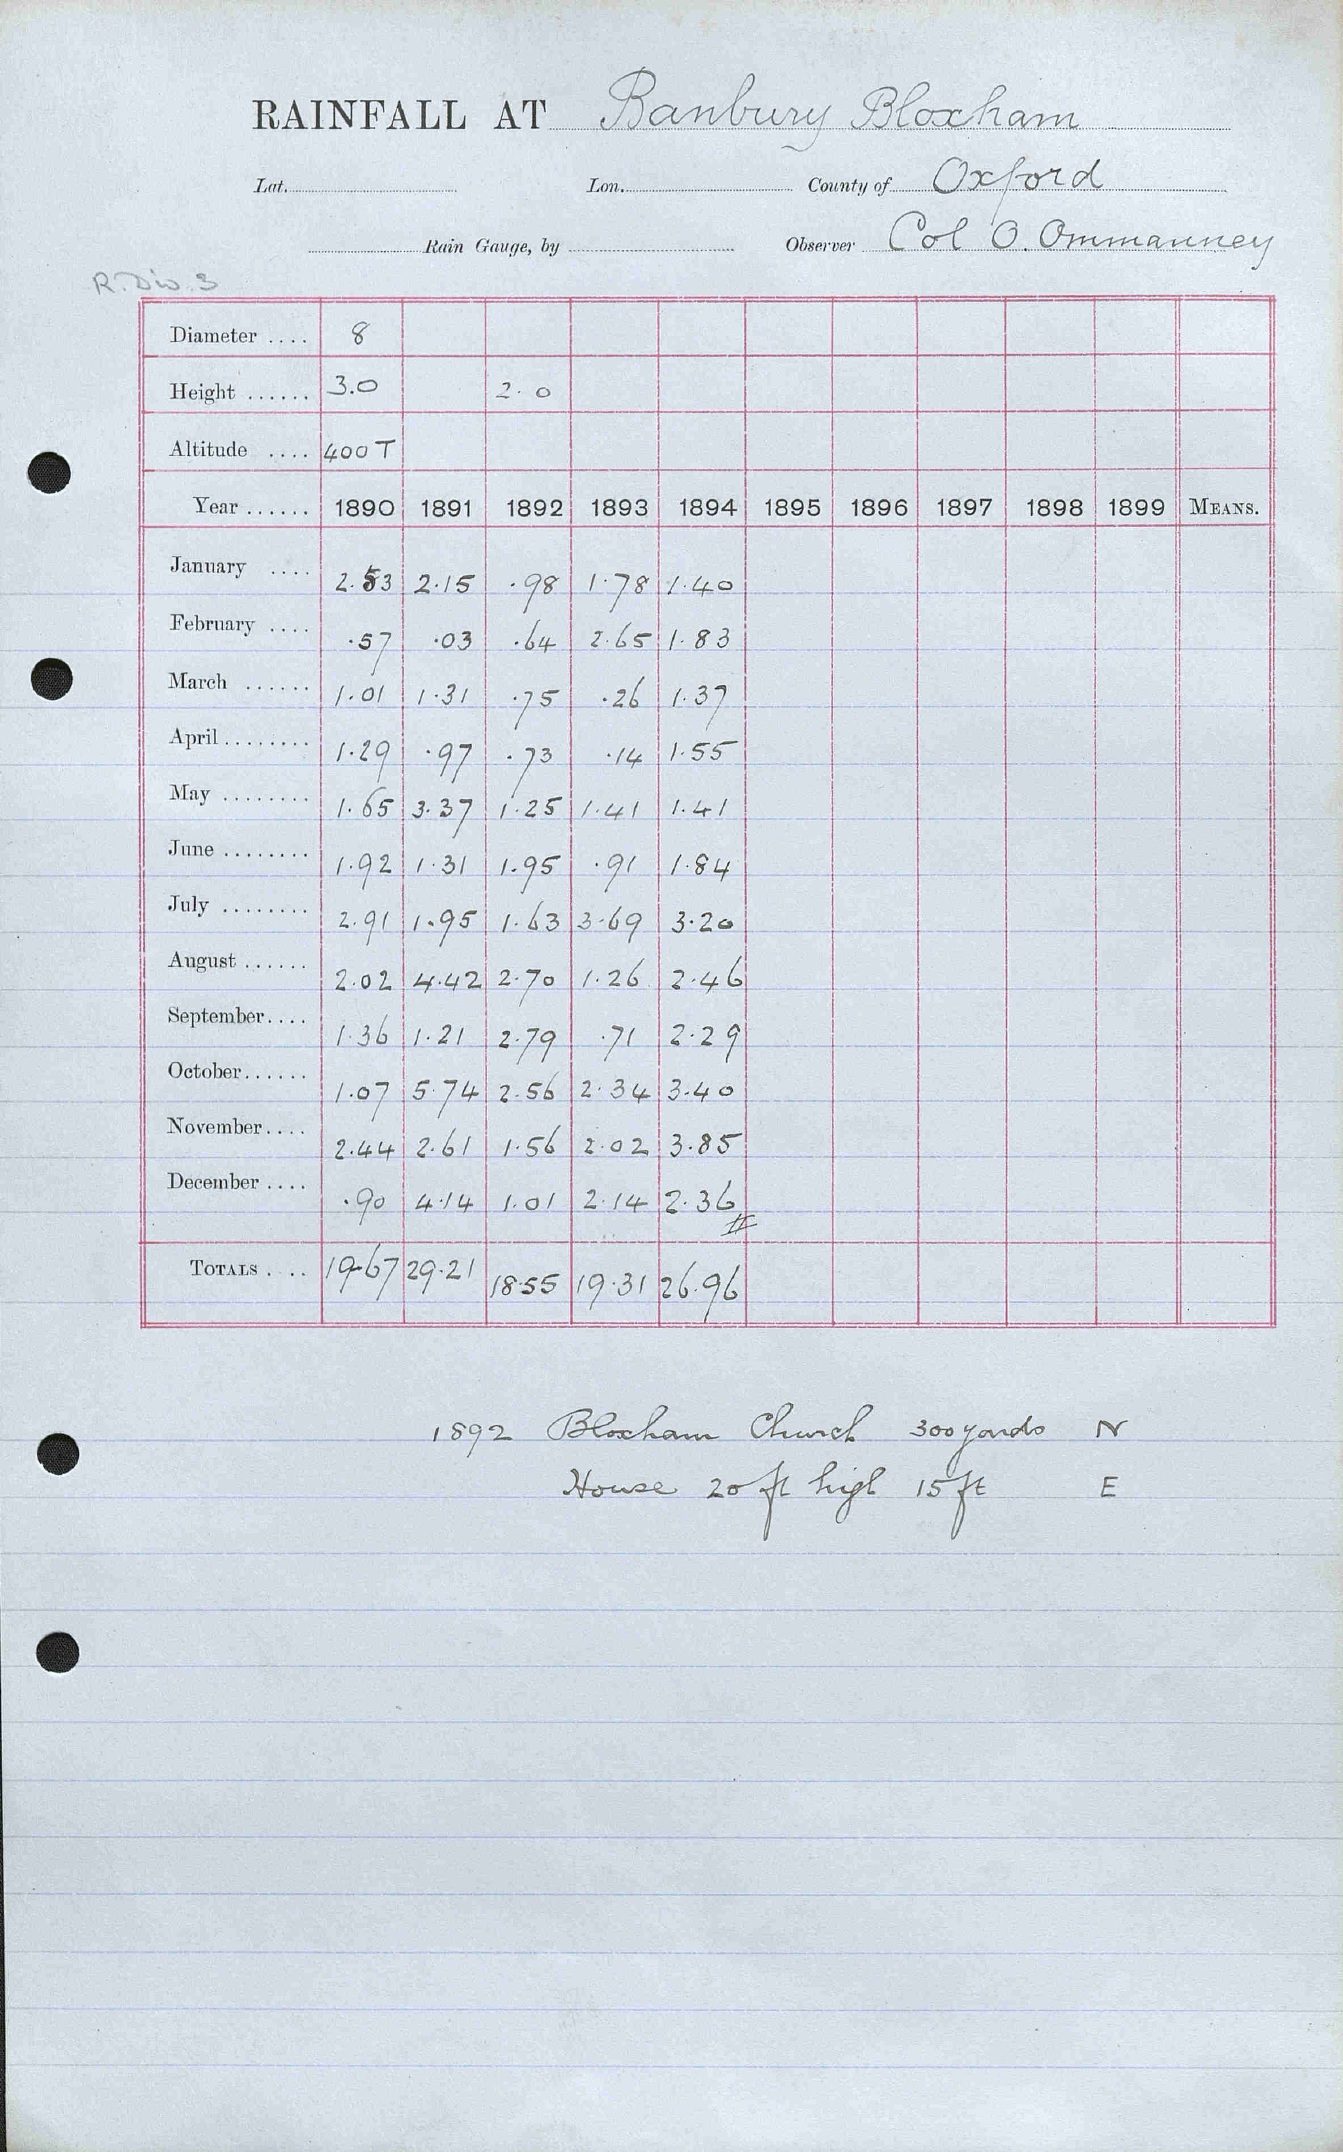 RAINFALL AT Banbury Bloxham
Lat. Lon. County of Oxford
Rain Gauge, by Observer Col O. Ommanney
R. Div. 3
Diameter .... 8
Height ...... 3.0 2.0
Altitude .... 400 T
Year ...... 1890 1891 1892 1893 1894 1895 1896 1897 1898 1899 MEANS.
January .... 2.53 2.15 .98 1.78 1.40
February .... .57 .03 .64 2.65 1.83
March ...... 1.01 1.31 .75 .26 1.37
April ........ 1.29 .97 .73 .14 1.55
May ........ 1.65 3.37 1.25 1.41 1.41
June ........ 1.92 1.31 1.95 .91 1.84
July ........ 2.91 1.95 1.63 3.69 3.20
August ...... 2.02 4.42 2.70 1.26 2.46
September .... 1.36 1.21 2.79 .71 2.29
October ...... 1.07 5.74 2.56 2.34 3.40
November .... 2.44 2.61 1.56 2.02 3.85
December .... .90 4.14 1.01 2.14 2.36
TOTALS .... 19.67 29.21 18.55 19.31 26.96
1892 Bloxham Church 300 yards N
House 20 ft high 15 ft E